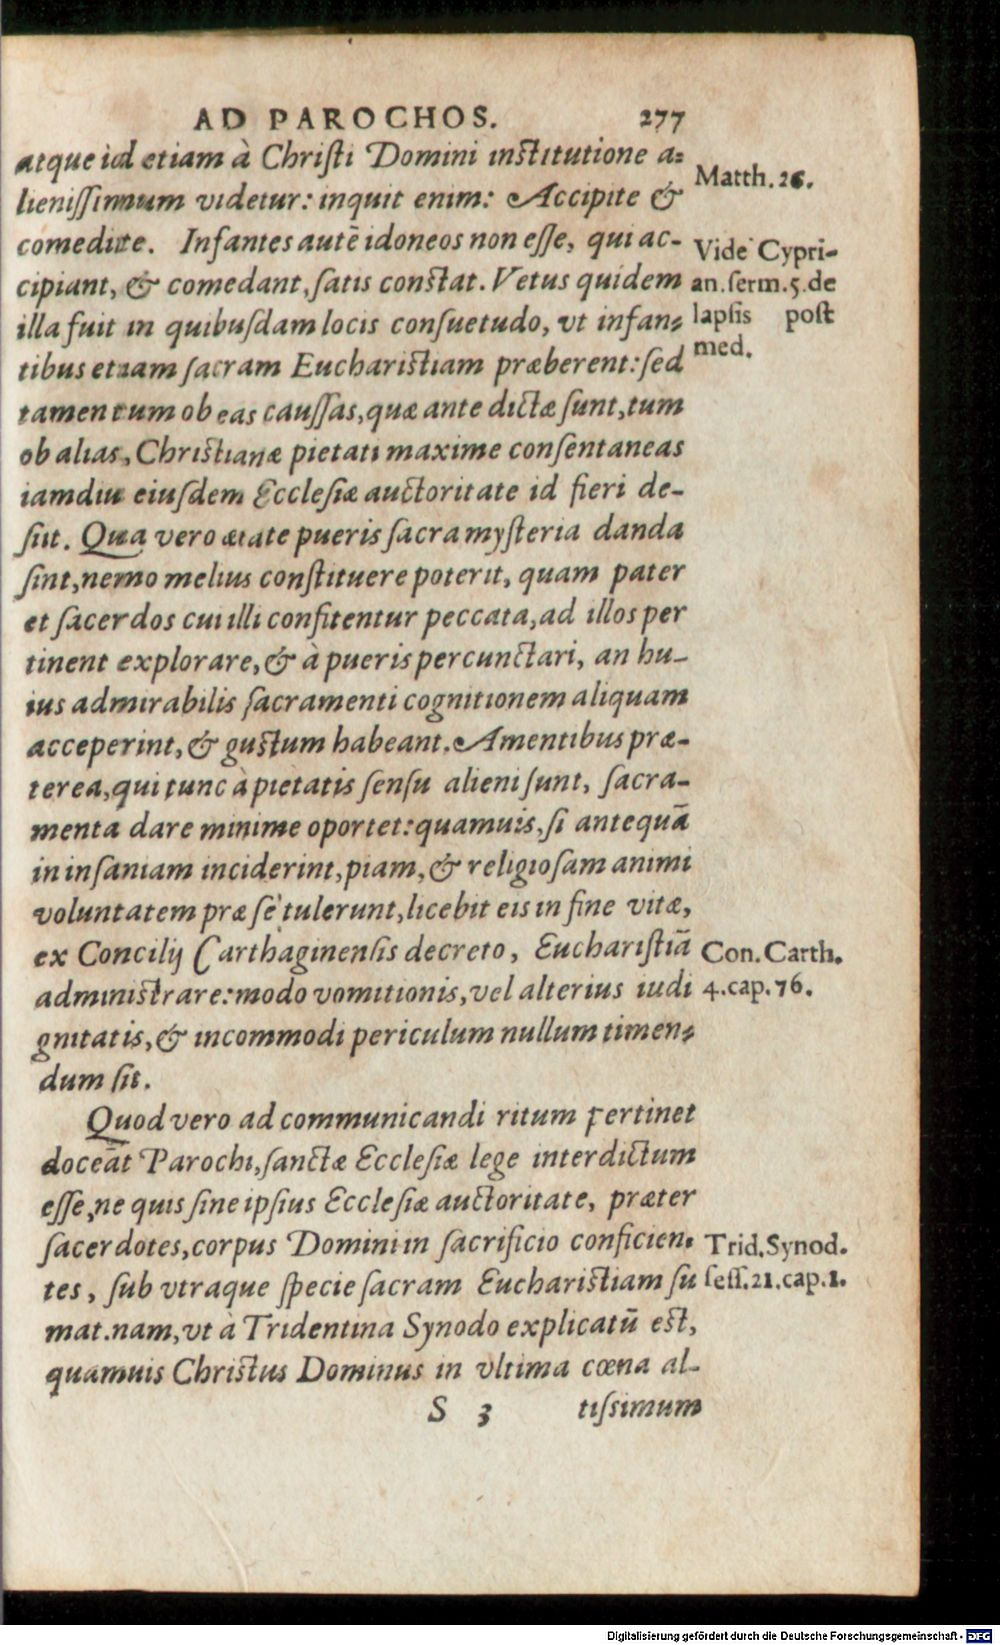 AD PAROCHOS. 277
atque id etiam à Christi Domini institutione a-
lienissimum videtur: inquit enim: Accipite &
comedite. Infantes autē idoneos non esse, qui ac-
cipiant, & comedant, satis constat. Vetus quidem
illa fuit in quibusdam locis consuetudo, vt infan-
tibus etiam sacram Eucharistiam præberent: sed
tamen tum ob eas caussas, quæ ante dictæ sunt, tum
ob alias, Christianæ pietati maxime consentaneas
iamdiu eiusdem Ecclesiæ auctoritate id fieri de-
siit. Qua vero ætate pueris sacra mysteria danda
sint, nemo melius constituere poterit, quam pater
et sacerdos cui illi confitentur peccata, ad illos per
tinent explorare, & à pueris percunctari, an hu-
ius admirabilis sacramenti cognitionem aliquam
acceperint, & gustum habeant. Amentibus præ-
terea, qui tunc à pietatis sensu alieni sunt, sacra-
menta dare minime oportet: quamuis, si antequā
in insaniam inciderint, piam, & religiosam animi
voluntatem præ se tulerunt, licebit eis in fine vitæ,
ex Concilij Carthaginensis decreto, Eucharistiā
administrare: modo vomitionis, vel alterius indi
gnitatis, & incommodi periculum nullum timen-
dum sit.
Quod vero ad communicandi ritum pertinet
doceāt Parochi, sanctæ Ecclesiæ lege interdictum
esse, ne quis sine ipsius Ecclesiæ auctoritate, præter
sacerdotes, corpus Domini in sacrificio conficien-
tes, sub vtraque specie sacram Eucharistiam su
mat. nam, vt à Tridentina Synodo explicatū est,
quamuis Christus Dominus in vltima cœna al-
S 3 tissimum
Matth. 26.
Vide Cypri-
an. serm. 5. de
lapsis post
med.
Con. Carth.
4. cap. 76.
Trid. Synod.
sess. 21. cap. 1.
Digitalisierung gefördert durch die Deutsche Forschungsgemeinschaft - DFG